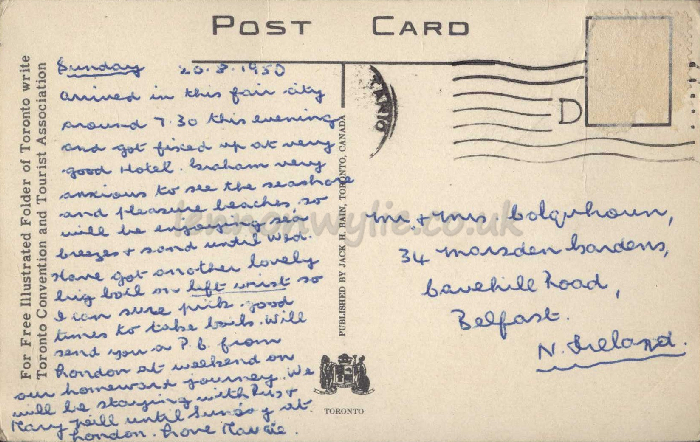 POST CARD
For Free Illustrated Folder of Toronto write
Toronto Convention and Tourist Association
Sunday 20.8.1950
Arrived in this fair city
around 7.30 this evening
and got fixed up at very
good Hotel. Graham very
anxious to see the seashore
and pleasure beaches, so
will be enjoying sea
breezes & sand until Wed.
Have got another lovely
big boil on left wrist so
I can sure pick good
times to take boils. Will
send you a P.C. from
London at weekend on
our homeward journey. We
will be staying with
Mary Neill until Sunday at
London. Love Maggie.
PUBLISHED BY JACK H. BAIN, TORONTO, CANADA
TORONTO
TARIO
D
Mr. & Mrs. Colquhoun,
34 Marsden Gardens,
Cavehill Road,
Belfast.
N. Ireland.
lennonwylie.co.uk